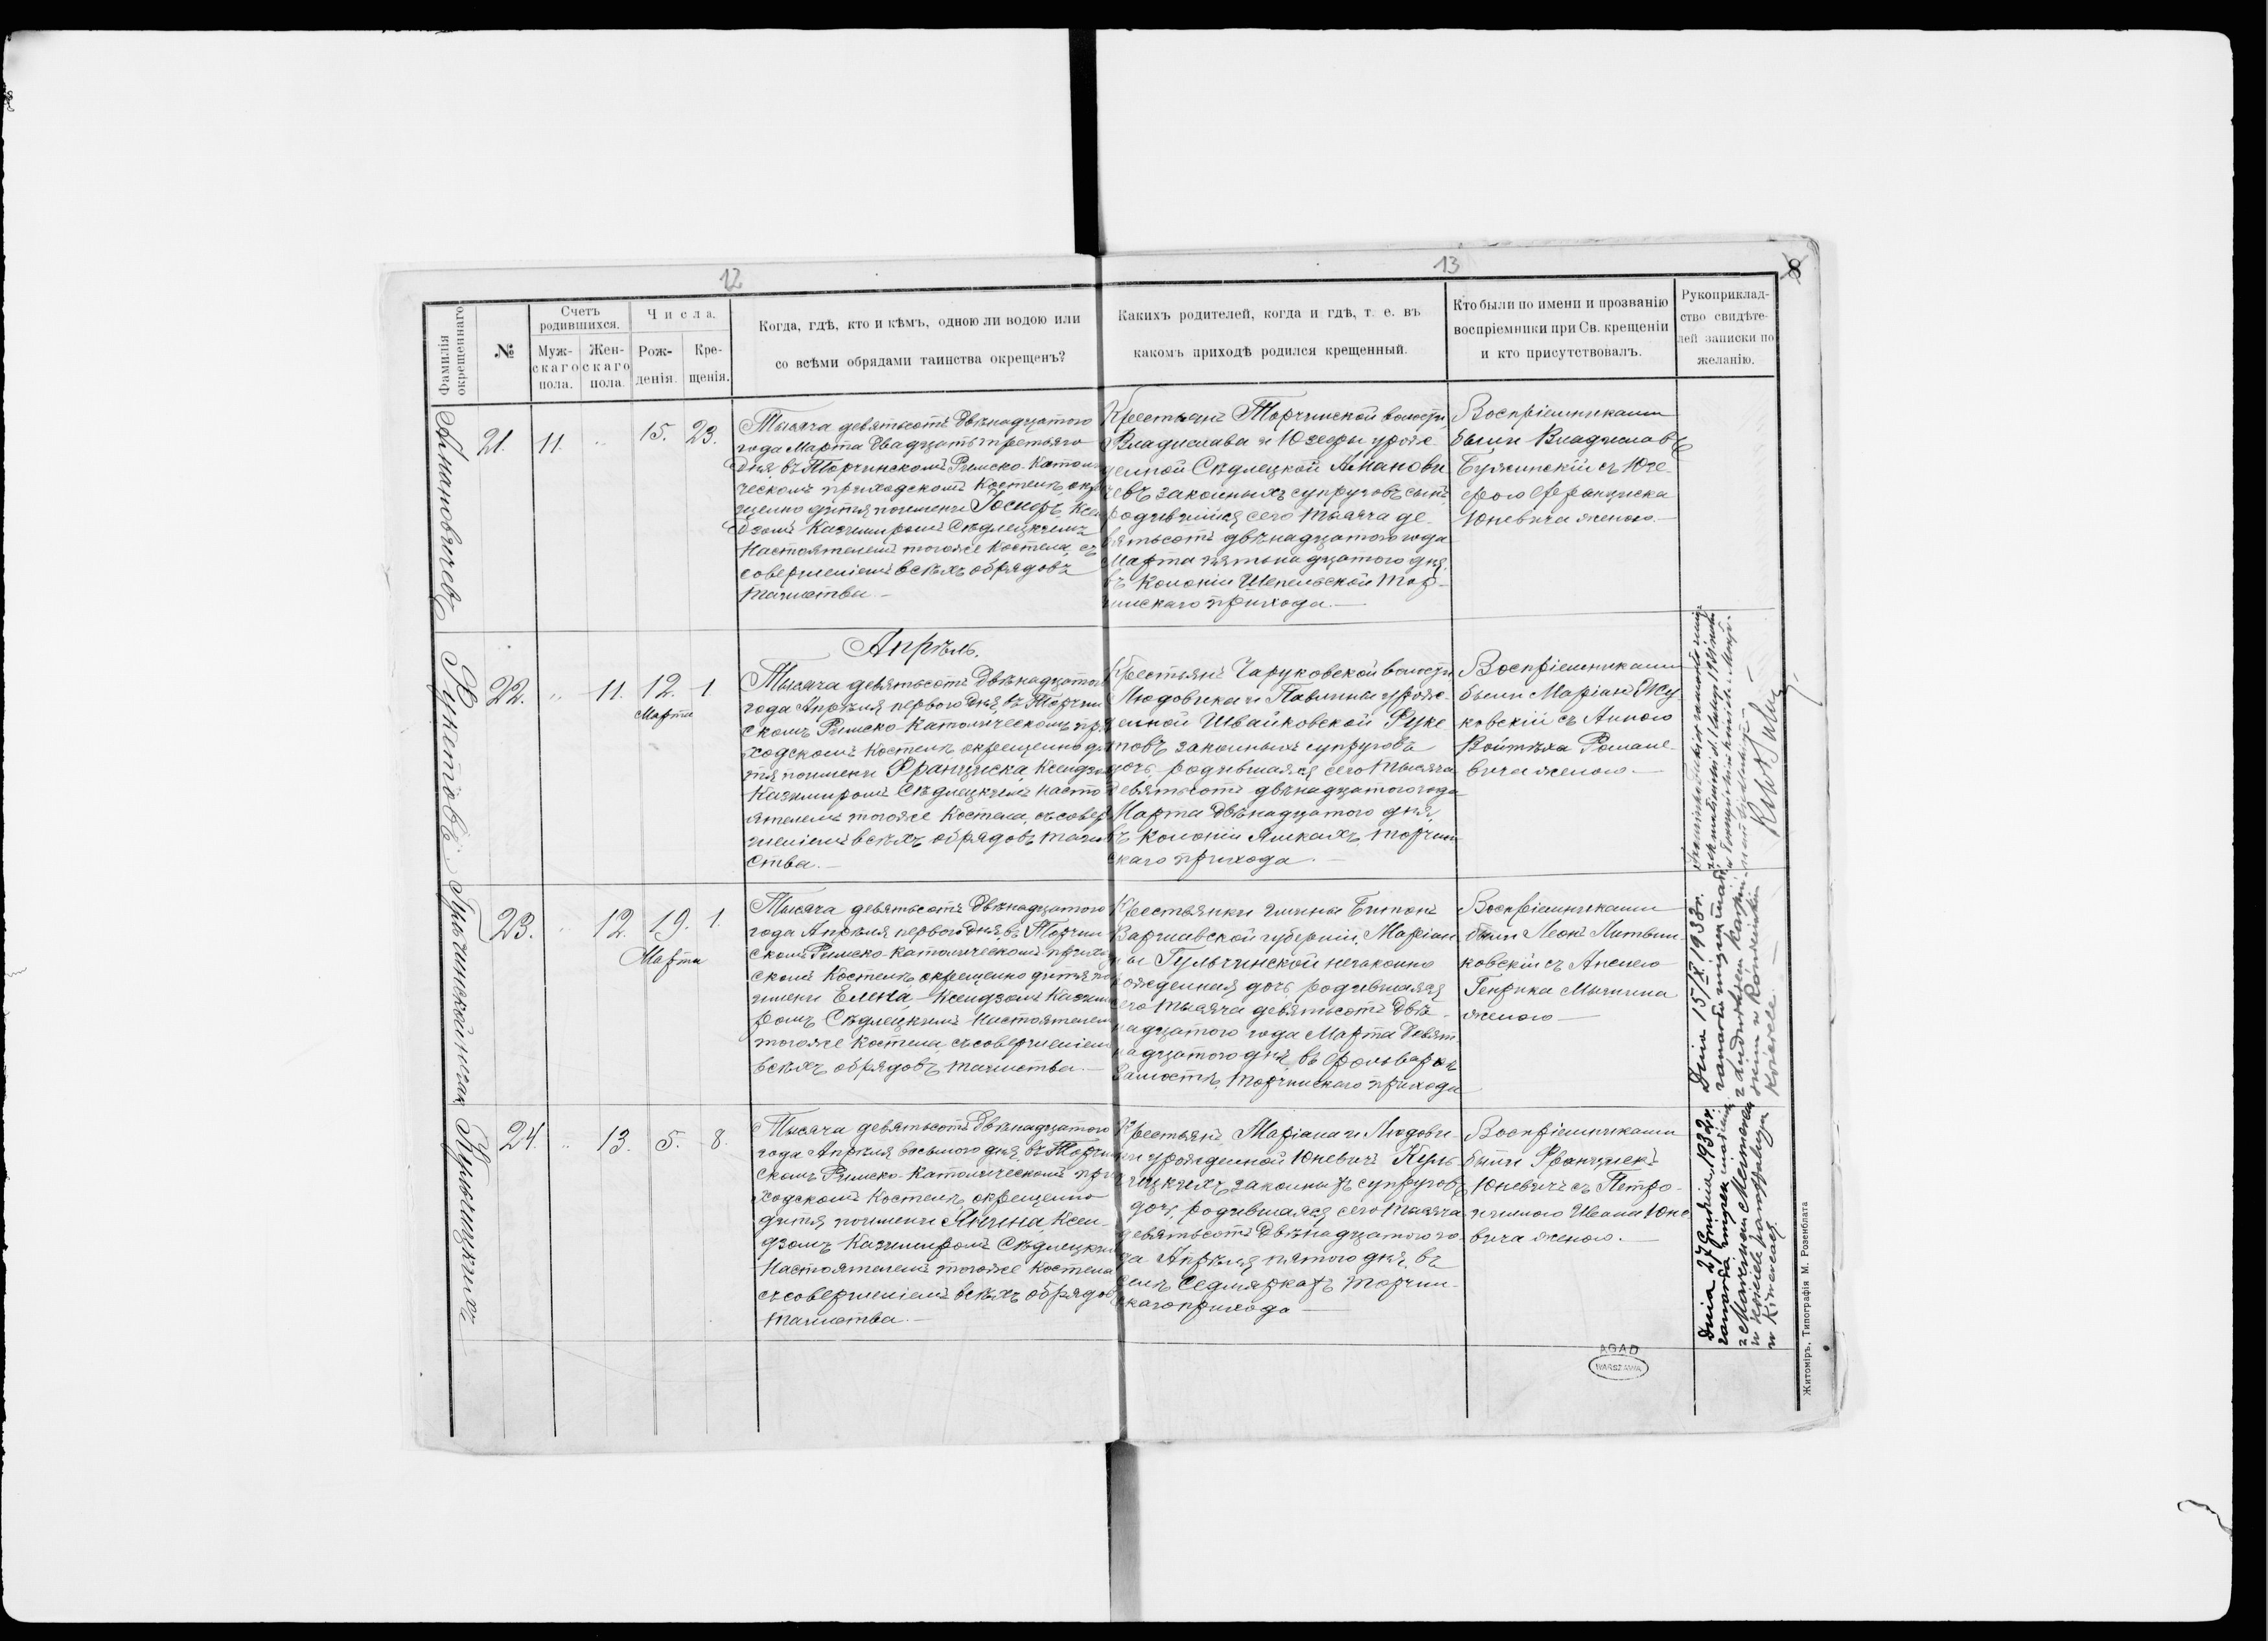 12
13
8
Фамилія окрещеннаго
№
Счетъ родившихся.
Мужскаго пола.
Женскаго пола.
Числа.
Рожденія.
Крещенія.
Когда, гдѣ, кто и кѣмъ, одною ли водою или
со всѣми обрядами таинства окрещенъ?
Какихъ родителей, когда и гдѣ, т. е. въ
какомъ приходѣ родился крещенный.
Кто были по имени и прозванію
воспріемники при Св. крещеніи
и кто присутствовалъ.
Рукоприклад-
ство свидѣте-
лей записки по
желанію.
Амановичевъ
21. 11. " 15. 23.
Тысяча девятьсотъ двѣнадцатого
года Марта двадцать третьяго
дня въ Торчинскомъ Римско-Католи
ческомъ приходскомъ Костелѣ окре
щено дитя по имени Іосифъ, Ксен
дзомъ Казимиромъ Сѣдлецкимъ
Настоятелемъ тогоже Костела, съ
совершеніемъ всѣхъ обрядовъ
таинства.
Крестьянъ Торчинской волости,
Владислава и Юзефы урож-
денной Сѣдлецкой Аманови
чевъ законныхъ супруговъ сынъ
родившійся сего тысяча де-
вятьсотъ двѣнадцатого года
Марта пятьнадцатого дня,
въ Колоніи Шепельской Тор-
чинскаго прихода.
Воспріемниками
были Владиславъ
съ Юзе-
фою Франциска
Юневича женою.
Апрѣль.
Рукетовъ
22. " 11. 12. 1
Марта
Тысяча девятьсотъ двѣнадцатого
года Апрѣля перваго дня, въ Торчин
скомъ Римско-Католическомъ при
ходскомъ Костелѣ окрещено ди
тя по имени Франциска, Ксендзом
Казимиромъ Сѣдлецкимъ насто
ятелемъ тогоже Костела, съ совер
шеніемъ всѣхъ обрядовъ таин
ства.
Крестьянъ Чаруковской волости
Людовика и Павлины урож-
денной Швайковской Руке
товъ законныхъ супруговъ
дочь, родившаяся сего тысяча
девятьсотъ двѣнадцатого года
Марта двѣнадцатого дня,
въ Колоніи Ямкахъ, Торчин
скаго прихода.
Воспріемниками
были Маріанъ Жу
ковскій съ Анною
Войтѣха Романе-
вича женою.
Гульчинской
23. " 12. 19. 1.
Марта
Тысяча девятьсотъ двѣнадцатого
года Апрѣля перваго дня, въ Торчин
скомъ Римско-Католическомъ приход
скомъ Костелѣ окрещено дитя по
имени Елена, Ксендзомъ Казими
ромъ Сѣдлецкимъ Настоятелем
тогоже Костела, съ совершеніем
всѣхъ обрядовъ таинства.
Крестьянки гмины
Варшавской губерніи, Маріан
ны Гульчинской незаконно
рожденная дочь, родившаяся
сего тысяча девятьсотъ двѣ-
надцатого года Марта девят
надцатого дня, въ фольваркѣ
Замостя, Торчинскаго прихода
Воспріемниками
были Леонъ Литвин-
ковскій съ Анелею
Генрика
женою
Кульчицкихъ
24. " 13. 5. 8.
Тысяча девятьсотъ двѣнадцатого
года Апрѣля восьмого дня, въ Торчин
скомъ Римско-Католическомъ при
ходскомъ Костелѣ, окрещено
дитя по имени Янина, Ксен-
дзомъ Казимиромъ Сѣдлецким
Настоятелемъ тогоже Костела
съ совершеніемъ всѣхъ обрядов
таинства.
Крестьянъ Маріана и Людови-
ки урожденной Юневичъ Куль
чицкихъ законныхъ супруговъ
дочь, родившаяся сего тысяча
девятьсотъ двѣнадцатого го
да Апрѣля пятого дня, въ
селѣ Седмяркахъ Торчин-
скаго прихода
Воспріемниками
были Францискъ
Юневичъ съ Петро-
нелею Ивана Юне
вича женою.
Dnia 15/IX 1938 r.
Dnia 27 Grudnia 1932 r.
w kościele parafjalnym
w Kiwercach
AGAD
WARSZAWA
Житоміръ, Типографія М. Розенблата